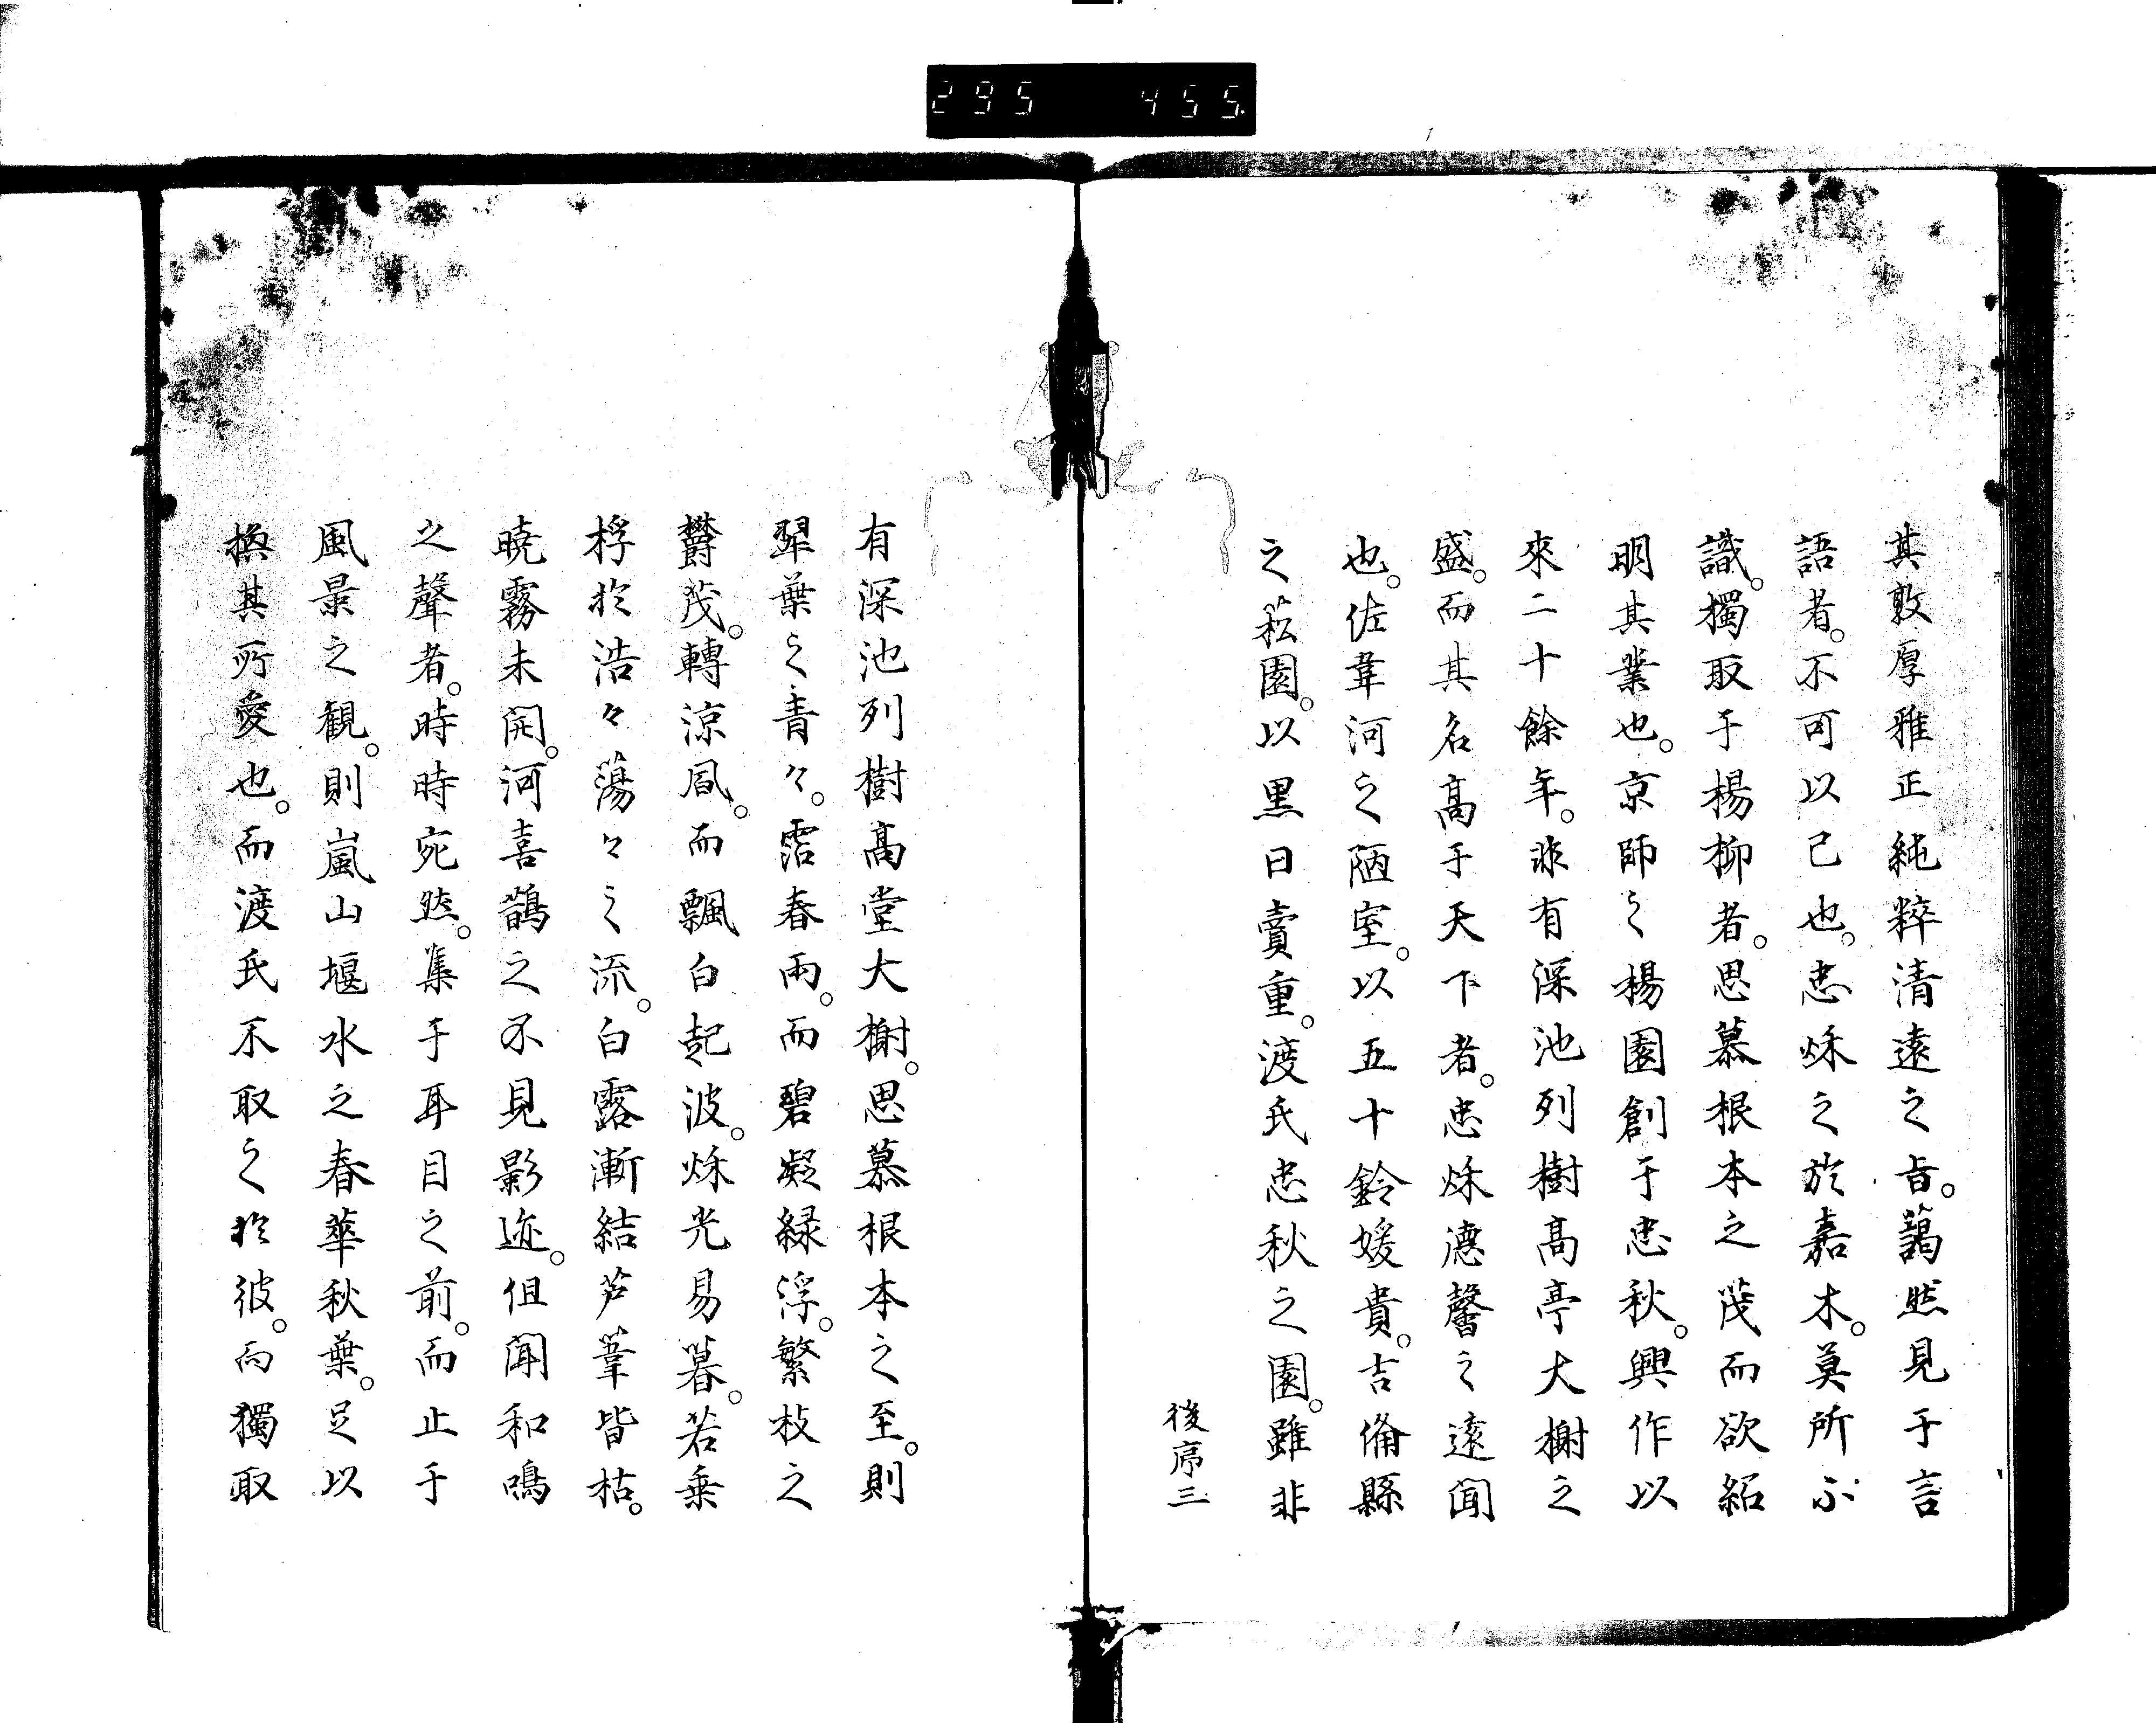 295 455
其敦厚雅正純粹清遠之旨。藹然見于言
語者。不可以已也。忠烁之於嘉木。莫所不
識。獨取于楊柳者。思慕根本之茂而欲紹
明其業也。京師之楊園創于忠秋。興作以
來二十餘年。非有深池列樹高亭大榭之
盛。而其名高于天下者。忠烁德馨之遠聞
也。佐韋河之陋室。以五十鈴媛貴。吉備縣
之菘園。以黑日賣重。渡氏忠秋之園。雖非
後序三
有深池列樹高堂大榭。思慕根本之至。則
翠葉之青々。霑春雨。而碧凝緑浮。繁枝之
欝茂。轉涼風。而飄白起波。烁光易暮。若乗
桴於浩々蕩々之流。白露漸結芦葦皆枯。
暁霧未開。河喜鵲之不見影迹。但聞和鳴
之聲者。時時宛然。集于耳目之前。而止于
風景之観。則嵐山堰水之春華秋葉。足以
換其所愛也。而渡氏不取之於彼。而獨取